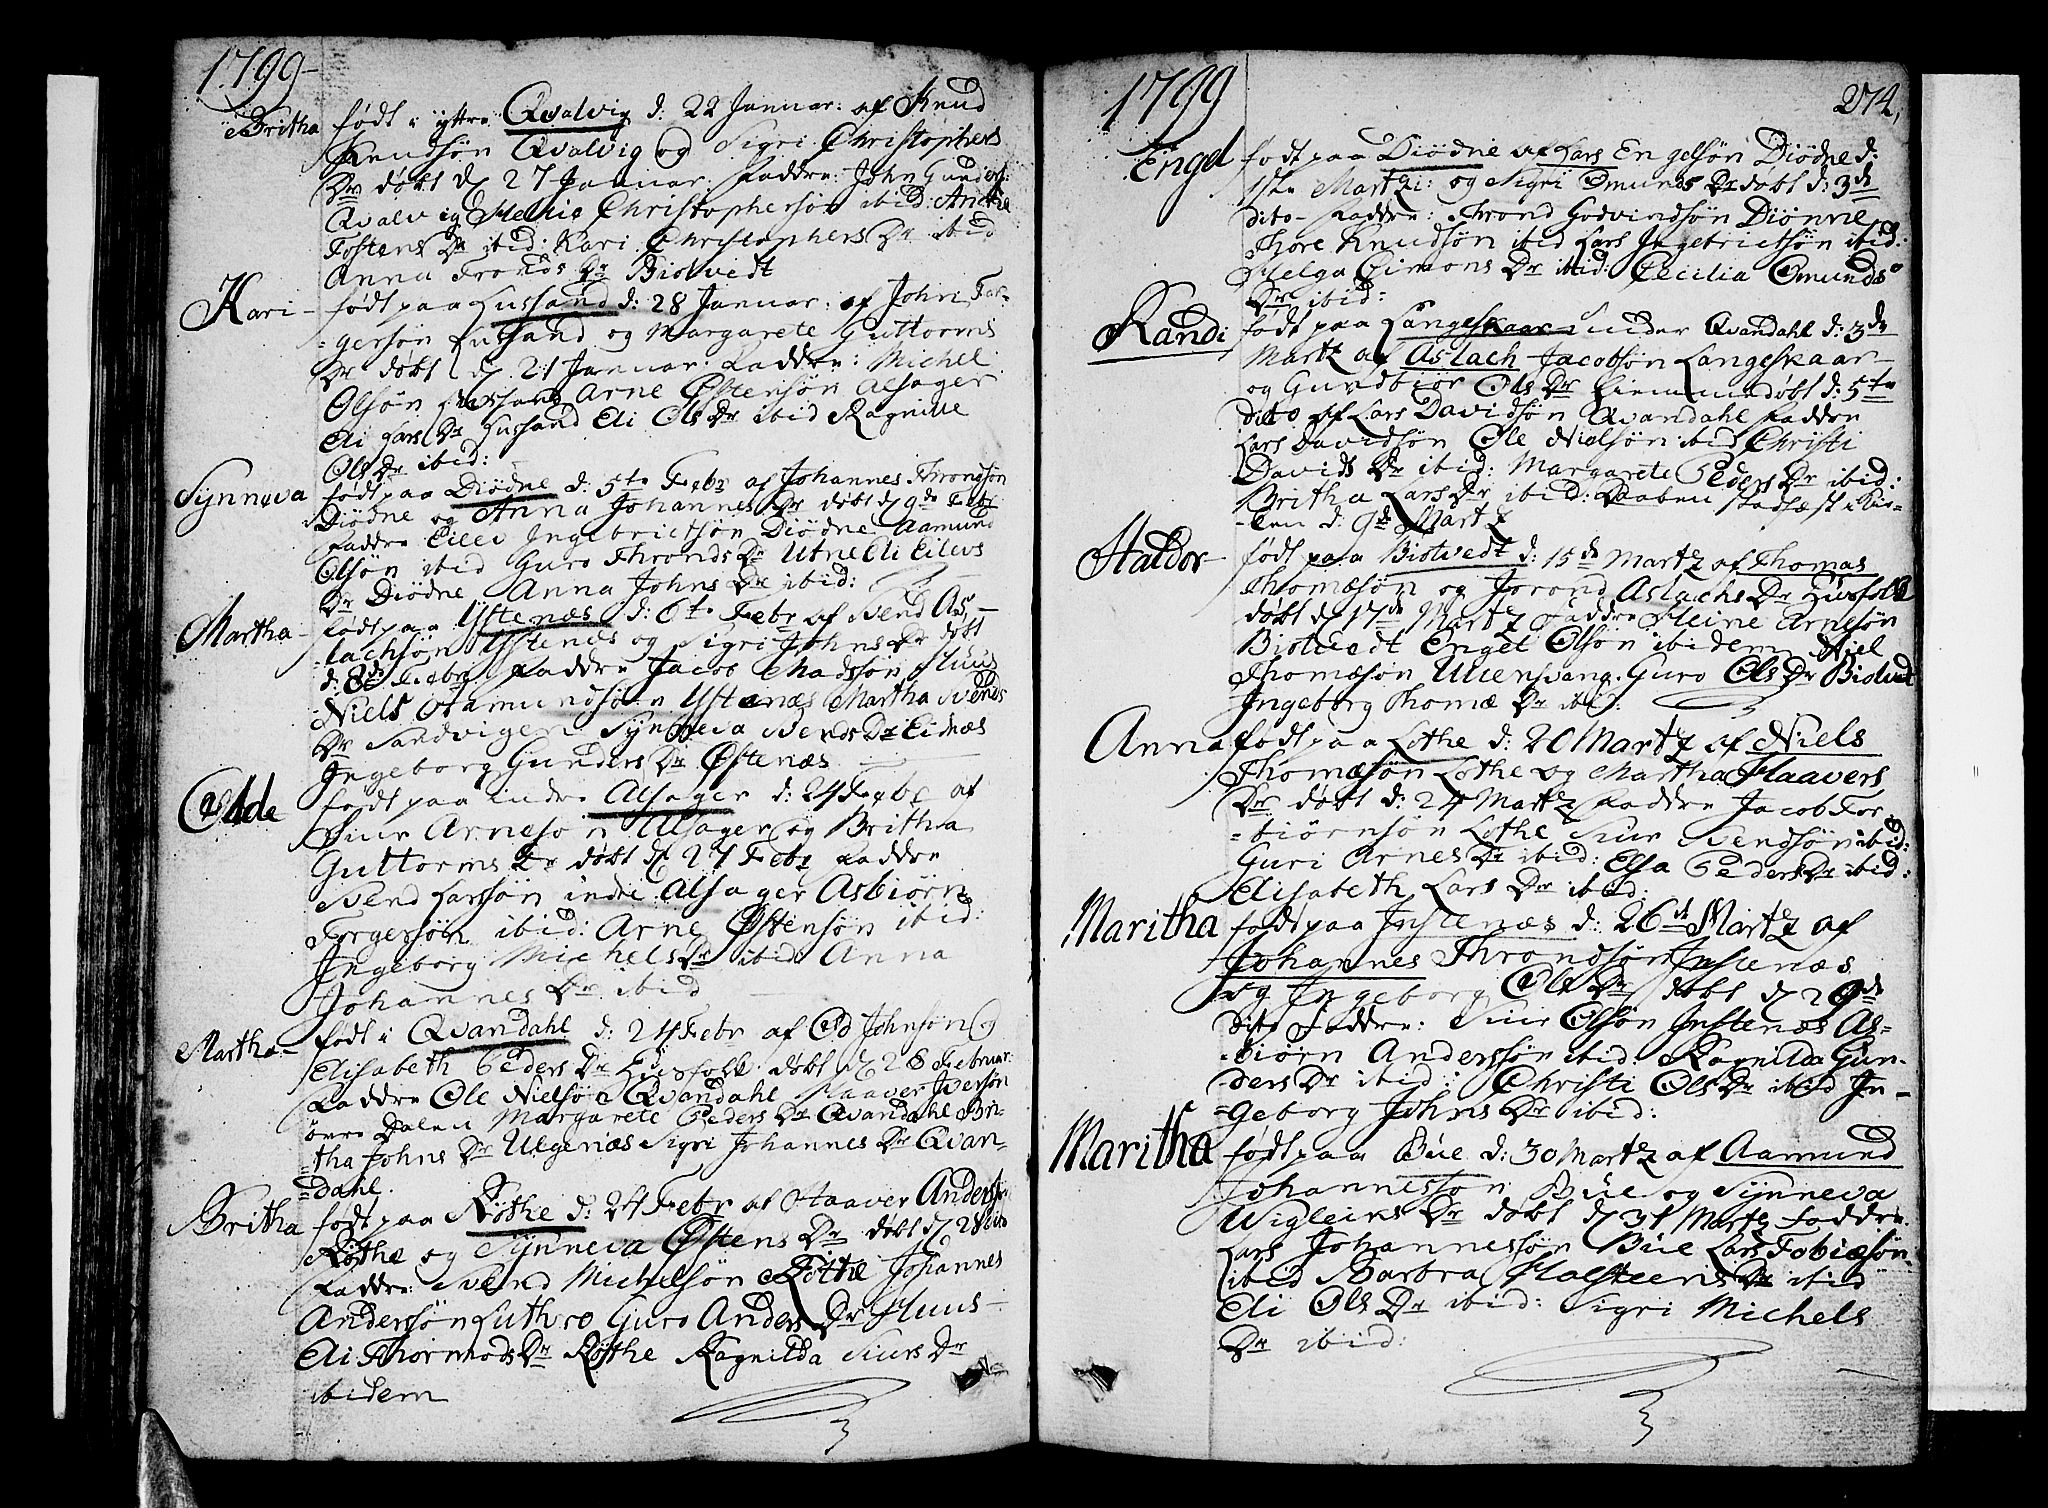 1799
Britha født i ÿttre Qvalvig d: 22 Januar: af Knud
Knudsøn Qvalvig og Sigri Christophers
Dr døbt d 27 Januar. Faddre: John Gunders:
Qvalvig Christophersøn ibid: Anna
Tostens Dr ibid: Kari Christophers Dr ibid
Anna Tronds Dr Biotvedt
Kari født paa Hussand d: 28 Januar: af John Tor-
=gersøn Hussand og Margarete Guttorms
Dr døbt d 21 Januar: Faddre: Michel
Olsøn Hussand Arne Østensøn Alsager
Eli Lars Dr Hussand Eli Ols Dr ibid Ragnilde
Ols Dr ibid:
Synneva født paa Diødne d: 5te Febr af Johannes Throndsøn
Diødne og Anna Johannes Dr døbt d 9de Febr
Faddre Eilev Ingebrictsøn Diødne Aamund
Olsøn ibid Guro Thronds Dr Utne Eli Eilevs
Dr Diødne Anna Johns Dr ibid:
Martha født paa Ystenæs d: 6te Febr af Svend As-
=lachsøn Ystenæs og Sigri Johns Dr døbt
d: 8de Febr Faddre Jacob Madssøn Huus
Niels Aamundsøn Ystenæs Martha Svends
Dr Sandvigen Synneva Svends Dr Eidnæs
Ingeborg Gunders Dr Østenæs
Odde født paa indre Alsager d: 24 Febr af
Siur Arnesøn Alsager og Britha
Guttorms Dr døbt d 27 Febr Faddre
Svend Larssøn indre Alsager Asbiørn
Torgersøn ibid: Arne Østensøn ibid:
Ingeborg Michels Dr ibid: Anna
Johannes Dr ibid
Martha født i Qvandahl d: 24 Febr af Od Johnsøn og
Elisabeth Peders Dr Huusfolk døbt d 28 Februar:
Faddre Ole Nielsøn Qvandahl Haaver Iversøn
øvre Dalen Margarete Peders Dr Qvandahl Bri-
=tha Johns Dr Ulgenæs Sigri Johannes Dr Qvan-
=dahl.
Britha født paa Røthe d: 24 Febr af Haaver Anderssøn
Røthe og Synneva Østens Dr døbt d 28
Faddre: Svend Michelsøn Røthe Johannes
Andersøn Luthro Guro Anders Dr Huus-
Eli Thormods Dr Røthe Ragnilda Siurs Dr
ibidem
1799
274,
Engel født paa Diødne af Lars Engelsøn Diødne d:
1ste Martzi: og Sigri Omunds Dr døbt d: 3de
dito- Faddre: Thrond Godvindsøn Diønne
Thore Knudsøn ibid Lars Ingebrictsøn ibid:
Helga Simons Dr ibid: Cecilia Omunds
Dr ibid:
Randi født paa Langeskaar under Qvandahl d: 3de
Martz af Aslach Jacobsøn Langeskaar-
og Gundbior Ols Dr døbt d: 5te
dito af Lars Davidsøn Qvandahl Faddre
Lars Davidsøn Ole Nielsøn ibid Christi
Davids Dr ibid: Margarete Peders Dr ibid:
Britha Lars Dr ibid: Daaben stadfæst i Kir-
=ken d: 9de Martz
Haldor født paa Biotvedt d: 15de Martz af Thomas
Thomæsøn og Jorond Aslachs Dr Huusfolk
døbt d 17de Martz Faddre Steine Arnesøn
Biotvedt Engel Olsøn ibidem Niel
Thomæsøn Ullensvang. Guro Ols Dr Biotvedt
Ingeborg Thomæ Dr ibid:
Anna født paa Lothe d: 20 Martz af Niels
Thomæsøn Lothe og Martha Haavers
Dr døbt d: 24 Martz Faddre Jacob Tor
=biørnsøn Lothe Siur Svendsøn ibid:
Guri Arnes Dr ibid: Elsa Peders Dr ibid:
Elisabeth Lars Dr ibid:
Maritha født paa Instenæs d: 26de Martz af
Johannes Throndsøn Instenæs
og Ingeborg Ols Dr døbt d 29de
dito Faddre: Siur Olsøn Instenæs As-
=biørn Anderssøn ibid: Ragnilda Gun-
=ders Dr ibid: Christi Ols Dr ibid In-
=geborg Johns Dr ibid:
Maritha født paa Büe d: 30 Martz af Aamund
Johannessøn Büe og Synneva
Wigleiks Dr døbt d 31 Martz Faddre.
Lars Johannessøn Büe Lars Tobiæsøn
ibid Barbra Halsteens Dr ibid
Eli Ols Dr ibid: Sigri Michels
Dr ibid: